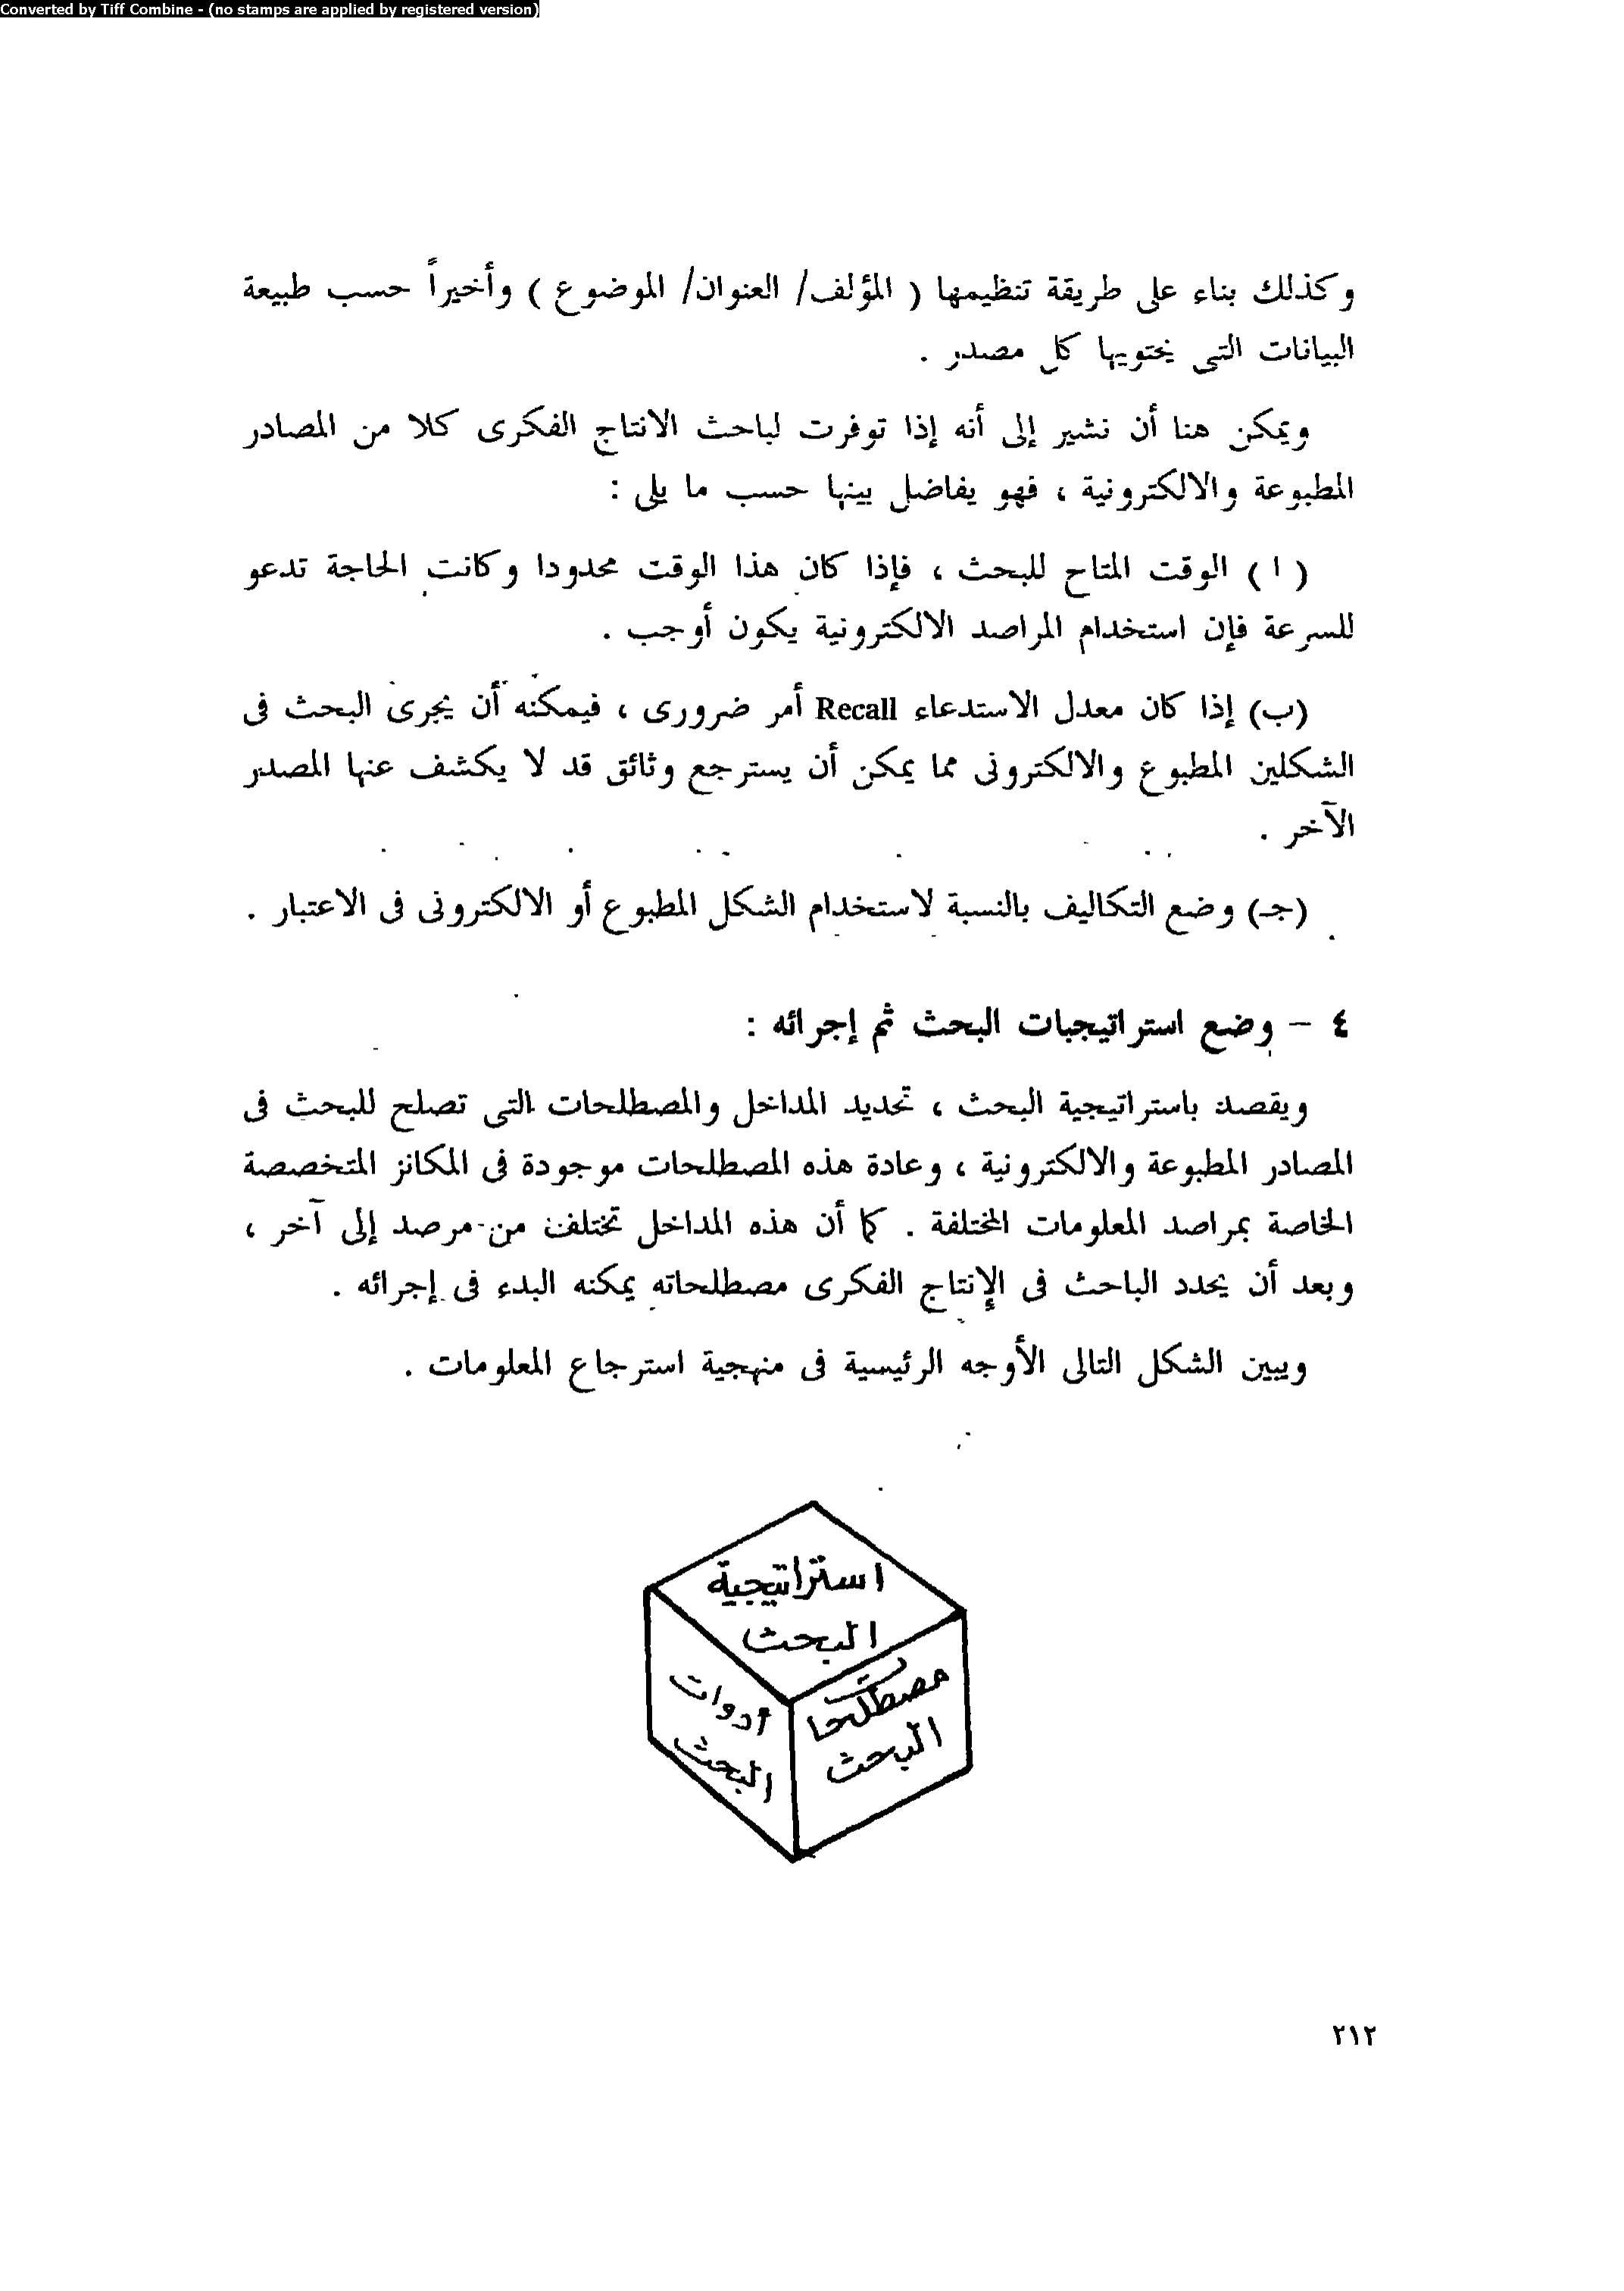 Converted by Tiff Combine - (no stamps are applied by registered version)
وكذلك بناء على طريقة تنظيمها ( المؤلف/ العنوان/ الموضوع ) وأخيراً حسب طبيعة
البيانات التى يحتويها كل مصدر .
ويمكن هنا أن نشير إلى أنه إذا توفرت لباحث الانتاج الفكرى كلا من المصادر
المطبوعة والالكترونية ، فهو يفاضل بينها حسب ما يلى :
( ا ) الوقت المتاح للبحث ، فإذا كان هذا الوقت محدودا وكانت الحاجة تدعو
للسرعة فإن استخدام المراصد الالكترونية يكون أوجب .
(ب) إذا كان معدل الاستدعاء Recall أمر ضرورى ، فيمكنه أن يجرى البحث فى
الشكلين المطبوع والالكترونى مما يمكن أن يسترجع وثائق قد لا يكشف عنها المصدر
الآخر .
(جـ) وضع التكاليف بالنسبة لاستخدام الشكل المطبوع أو الالكترونى فى الاعتبار .
٤ – وضع استراتيجيات البحث ثم إجرائه :
ويقصد باستراتيجية البحث ، تحديد المداخل والمصطلحات التى تصلح للبحث فى
المصادر المطبوعة والالكترونية ، وعادة هذه المصطلحات موجودة فى المكانز المتخصصة
الخاصة بمراصد المعلومات المختلفة . كما أن هذه المداخل تختلف من مرصد إلى آخر ،
وبعد أن يحدد الباحث فى الإنتاج الفكرى مصطلحاته يمكنه البدء فى إجرائه .
ويبين الشكل التالى الأوجه الرئيسية فى منهجية استرجاع المعلومات .
استراتيجية
البحث
مصطلحات
البحث
أدوات
البحث
٢١٢